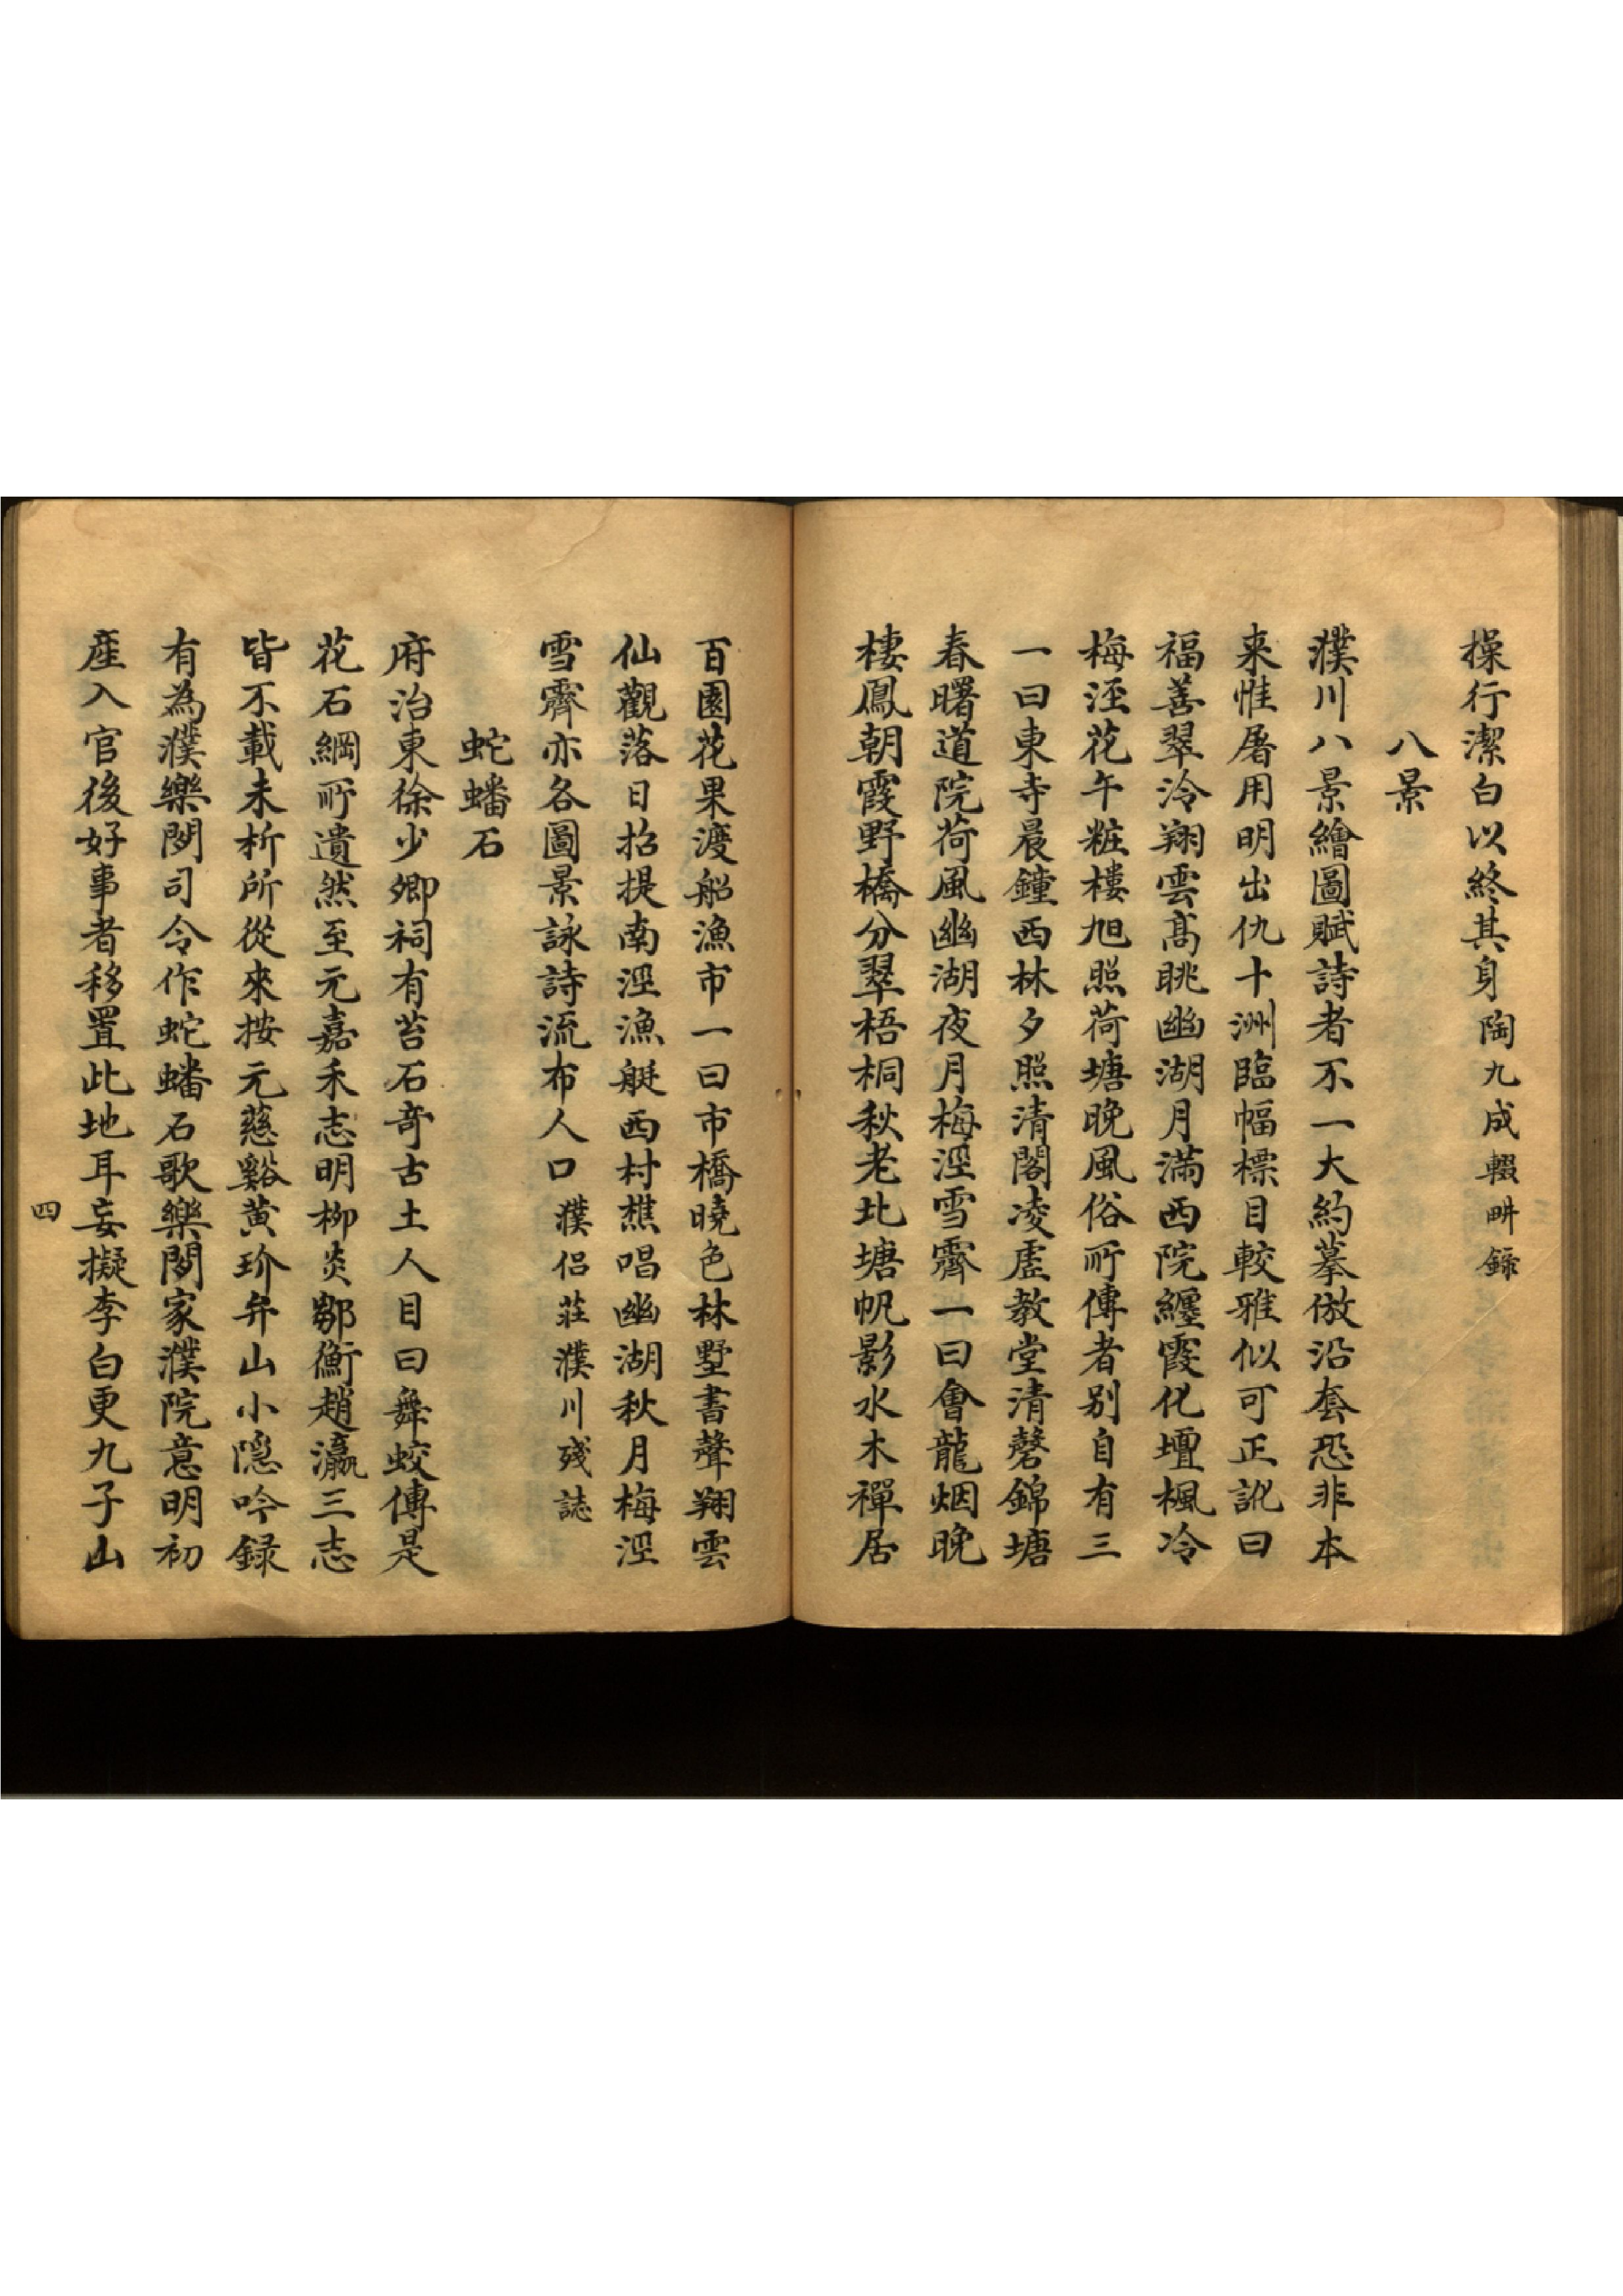 操行潔白以終其身陶九成輟畊錄
八景
濮川八景繪圖賦詩者不一大約摹倣沿套恐非本
来惟屠用明出仇十洲臨幅標目較雅似可正訛曰
福善翠冷翔雲髙眺幽湖月滿西院纏霞化壇楓冷
梅涇花午粧樓旭照荷塘晚風俗所傳者别自有三
一曰東寺晨鐘西林夕照清閣凌虛教堂清磬錦塘
春曙道院荷風幽湖夜月梅涇雪霽一曰會龍烟晚
棲鳳朝霞野橋分翠梧桐秋老北塘帆影水木禪居
百園花果渡船漁市一曰市橋曉色林墅書聲翔雲
仙觀落日招提南涇漁艇西村樵唱幽湖秋月梅涇
雪霽亦各圖景詠詩流布人口濮侣莊濮川殘誌
蛇蟠石
府治東徐少卿祠有苔石竒古土人目曰舞蛟傳是
花石綱所遺然至元嘉禾志明柳炎鄒衡趙瀛三志
皆不載未析所從來按元慈谿黄玠弁山小隠吟録
有為濮樂閒司令作蛇蟠石歌樂閒家濮院意明初
産入官後好事者移置此地耳妄擬李白更九子山
四